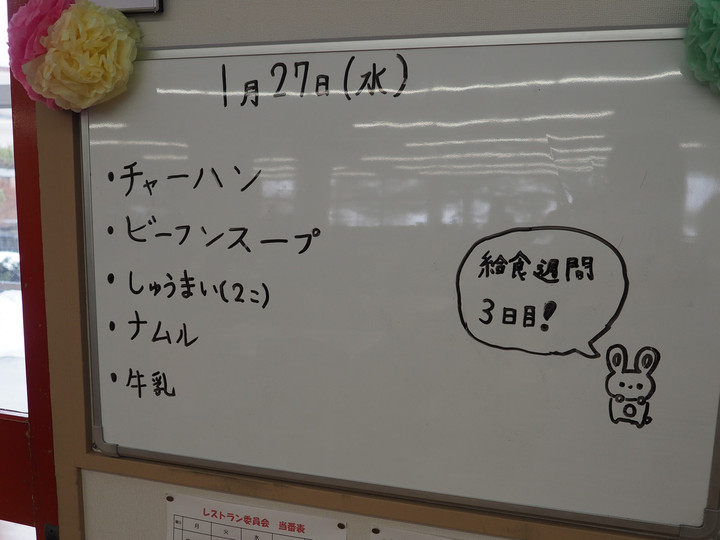 1月27日(水)
・チャーハン
・ビーフンスープ
・しゅうまい(2こ)
・ナムル
・牛乳
給食週間
3日目!
レストラン委員会 当番表
月 火 水